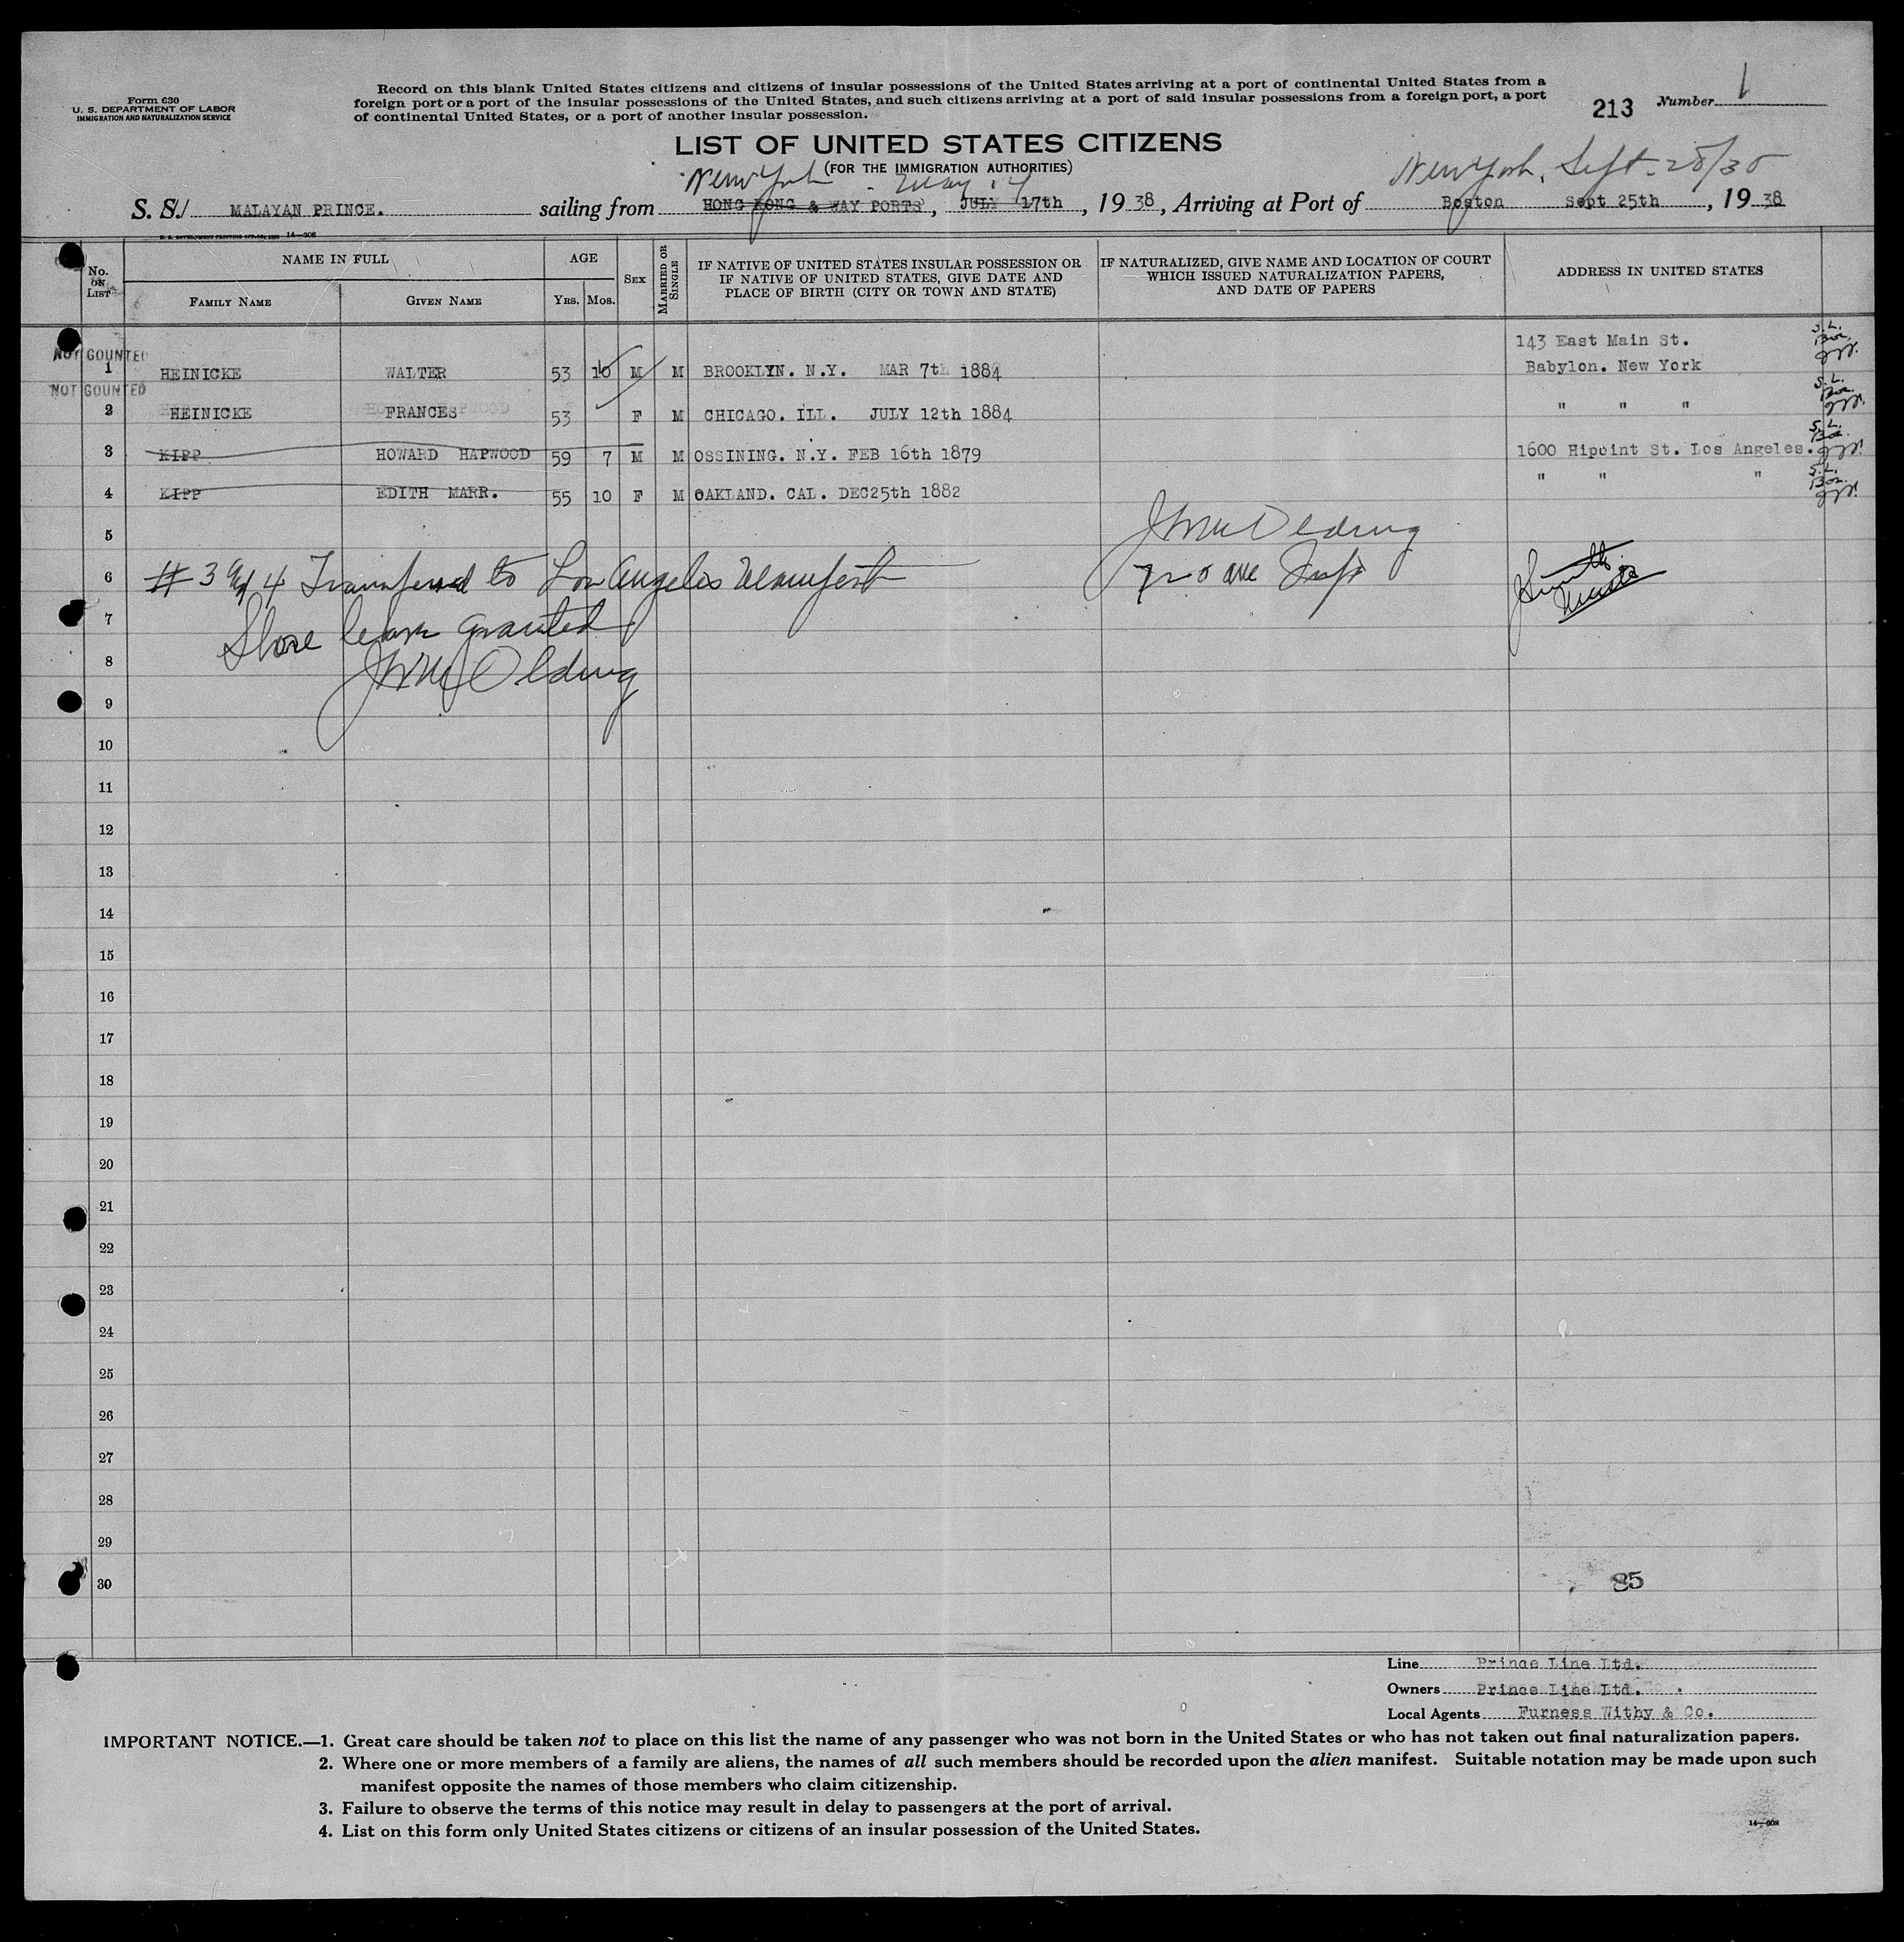 Form 630
U. S. DEPARTMENT OF LABOR
IMMIGRATION AND NATURALIZATION SERVICE
Record on this blank United States citizens and citizens of insular possessions of the United States arriving at a port of continental United States from a
foreign port or a port of the insular possessions of the United States, and such citizens arriving at a port of said insular possessions from a foreign port, a port
of continental United States, or a port of another insular possession.
213 Number 1
LIST OF UNITED STATES CITIZENS
(FOR THE IMMIGRATION AUTHORITIES)
New York May 14 New York, Sept. 28/38
S. S. MALAYAN PRINCE. sailing from HONG KONG & WAY PORTS, JULY 17th, 19 38, Arriving at Port of Boston Sept 25th, 19 38
14—608
No. ON LIST
NAME IN FULL
FAMILY NAME GIVEN NAME
AGE
YRS. MOS.
SEX
MARRIED OR SINGLE
IF NATIVE OF UNITED STATES INSULAR POSSESSION OR
IF NATIVE OF UNITED STATES, GIVE DATE AND
PLACE OF BIRTH (CITY OR TOWN AND STATE)
IF NATURALIZED, GIVE NAME AND LOCATION OF COURT
WHICH ISSUED NATURALIZATION PAPERS,
AND DATE OF PAPERS
ADDRESS IN UNITED STATES
143 East Main St. S.L.
NOT COUNTED
1 HEINICKE WALTER 53 10 M M BROOKLYN. N.Y. MAR 7th 1884 Babylon. New York
NOT COUNTED S.L.
2 HEINICKE FRANCES 53 F M CHICAGO. ILL. JULY 12th 1884 " " "
3 KIPP HOWARD HAPWOOD 59 7 M M OSSINING. N.Y. FEB 16th 1879 1600 Hipoint St. Los Angeles. S.L.
4 KIPP EDITH MARR. 55 10 F M OAKLAND. CAL. DEC25th 1882 " " " S.L.
5
6 # 3 and 4 Transferred to Los Angeles Manifest
7 Shore leave granted
8
9
10
11
12
13
14
15
16
17
18
19
20
21
22
23
24
25
26
27
28
29
30
85
Line Prince Line Ltd.
Owners Prince Line Ltd.
Local Agents Furness Withy & Co.
IMPORTANT NOTICE.—1. Great care should be taken not to place on this list the name of any passenger who was not born in the United States or who has not taken out final naturalization papers.
2. Where one or more members of a family are aliens, the names of all such members should be recorded upon the alien manifest. Suitable notation may be made upon such
manifest opposite the names of those members who claim citizenship.
3. Failure to observe the terms of this notice may result in delay to passengers at the port of arrival.
4. List on this form only United States citizens or citizens of an insular possession of the United States.
14—608